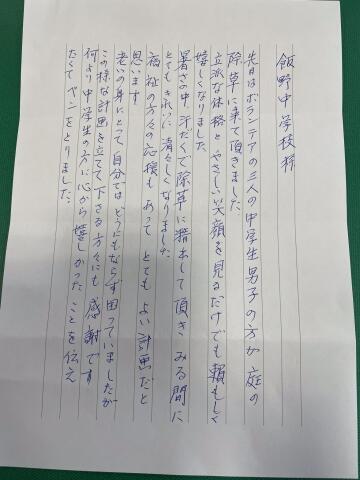 飯野中学校様
先日はボランテアの三人の中学生男子の方が庭の
除草に来て頂きました
立派な体格とやさしい笑顔を見るだけでも頼もしく
嬉しくなりました
暑さの中、汗だくで除草に精出して頂きみる間に
とてもきれいに清々しくなりました
福祉の方々の応援もあってとてもよい計画だと
思います
老いの身にとって自分ではどうにもならず困っていましたが
この様な計画を立てて下さる方々にも感謝です
何より中学生の方に心から嬉しかったことを伝え
たくてペンをとりました